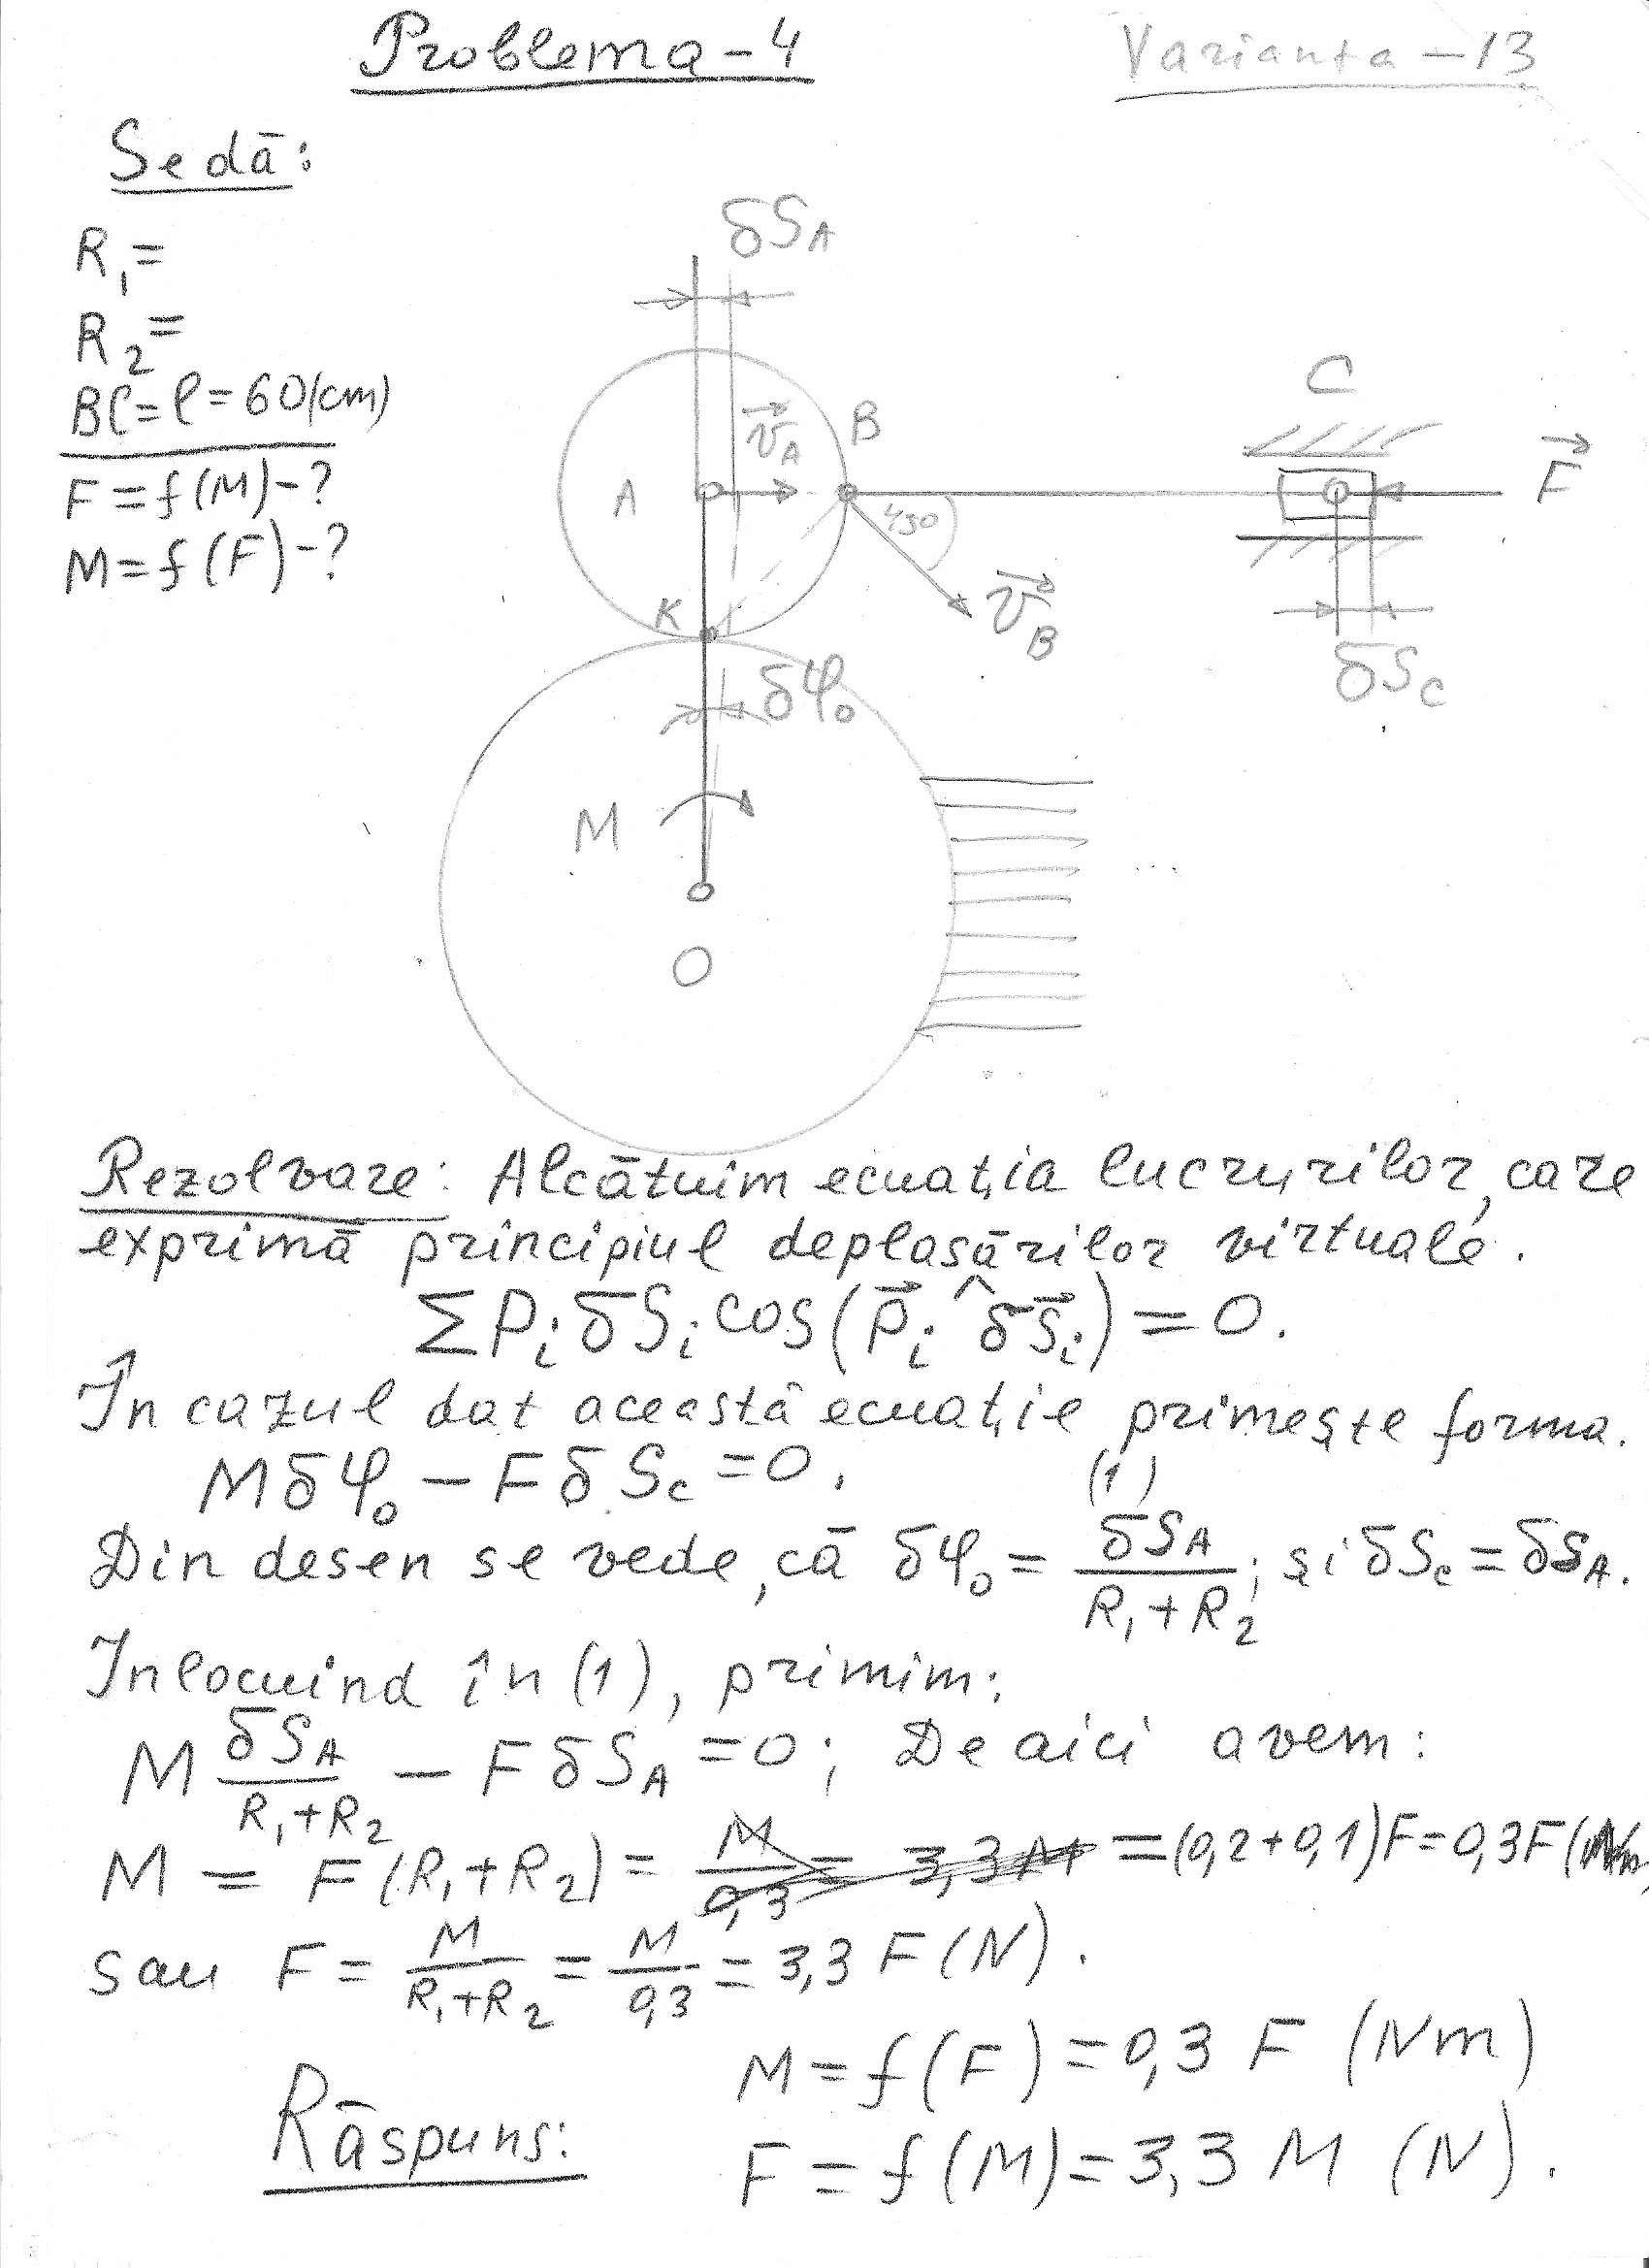 Problema-4
Varianta-13
Se dă:
R₁=
R₂=
BC=l=60(cm)
F=f(M)-?
M=f(F)-?
δS_A
v⃗_A
A
B
C
F⃗
45°
v⃗_B
K
δφ₀
δS_C
M
O
Rezolvare: Alcătuim ecuația lucrurilor, care
exprimă principiul deplasărilor virtuale.
ΣP_i δS_i cos(P⃗_i ^ δS⃗_i)=0.
În cazul dat această ecuație primește forma.
Mδφ₀ - FδS_c = 0, (1)
Din desen se vede, că δφ₀ = δS_A/(R₁+R₂); și δS_c = δS_A.
Inlocuind în (1), primim:
M δS_A/(R₁+R₂) - FδS_A = 0; De aici avem:
M = F(R₁+R₂) = M/0,3 = 3,3M = (0,2+0,1)F = 0,3F (Nm)
sau F = M/(R₁+R₂) = M/0,3 = 3,3 F (N).
Răspuns:
M = f(F) = 0,3 F (Nm)
F = f(M) = 3,3 M (N).